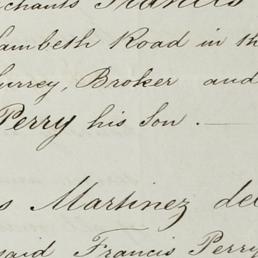 chants Francis
Lambeth Road in th
urrey, Broker and
Perry his Son.
s Martinez del
said Francis Perry